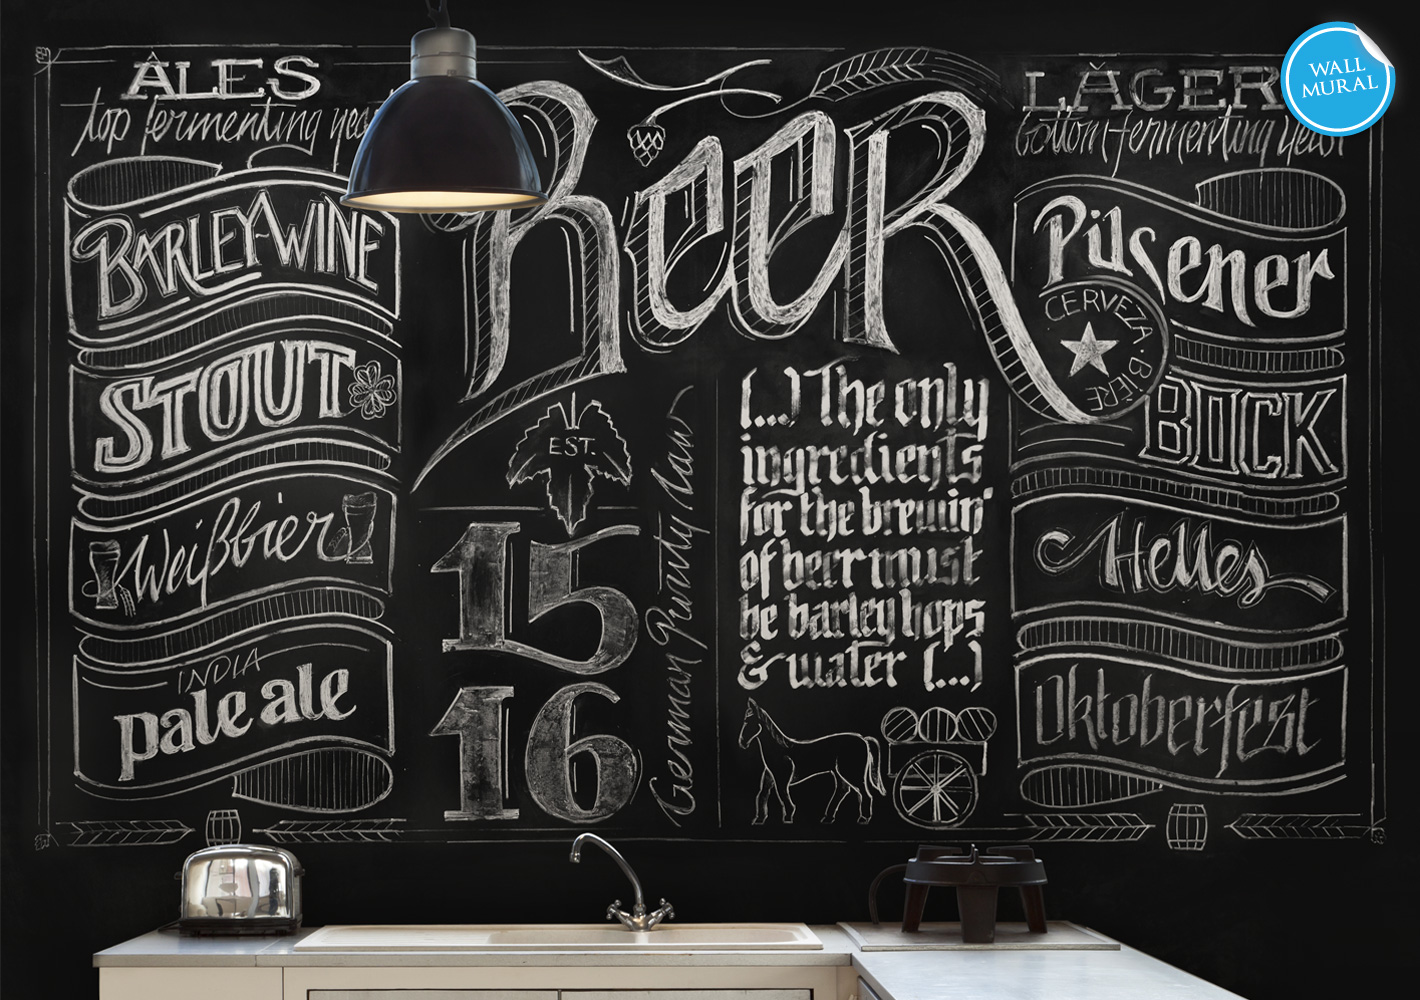 ÂLES
top fermenting yea
BARLEY-WINE
STOUT
Weißbier
INDIA
pale ale
BeeR
EST.
15
16
German Purity Law
(...) The only
ingredients
for the brewin'
of beer must
be barley hops
& water (...)
LÄGER
bottom fermenting yeast
Pilsener
CERVEZA · BIÈRE
BOCK
Helles
Oktoberfest
WALL
MURAL